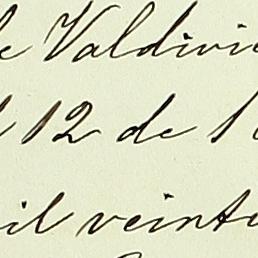 de Valdivi
12 de
il veinti